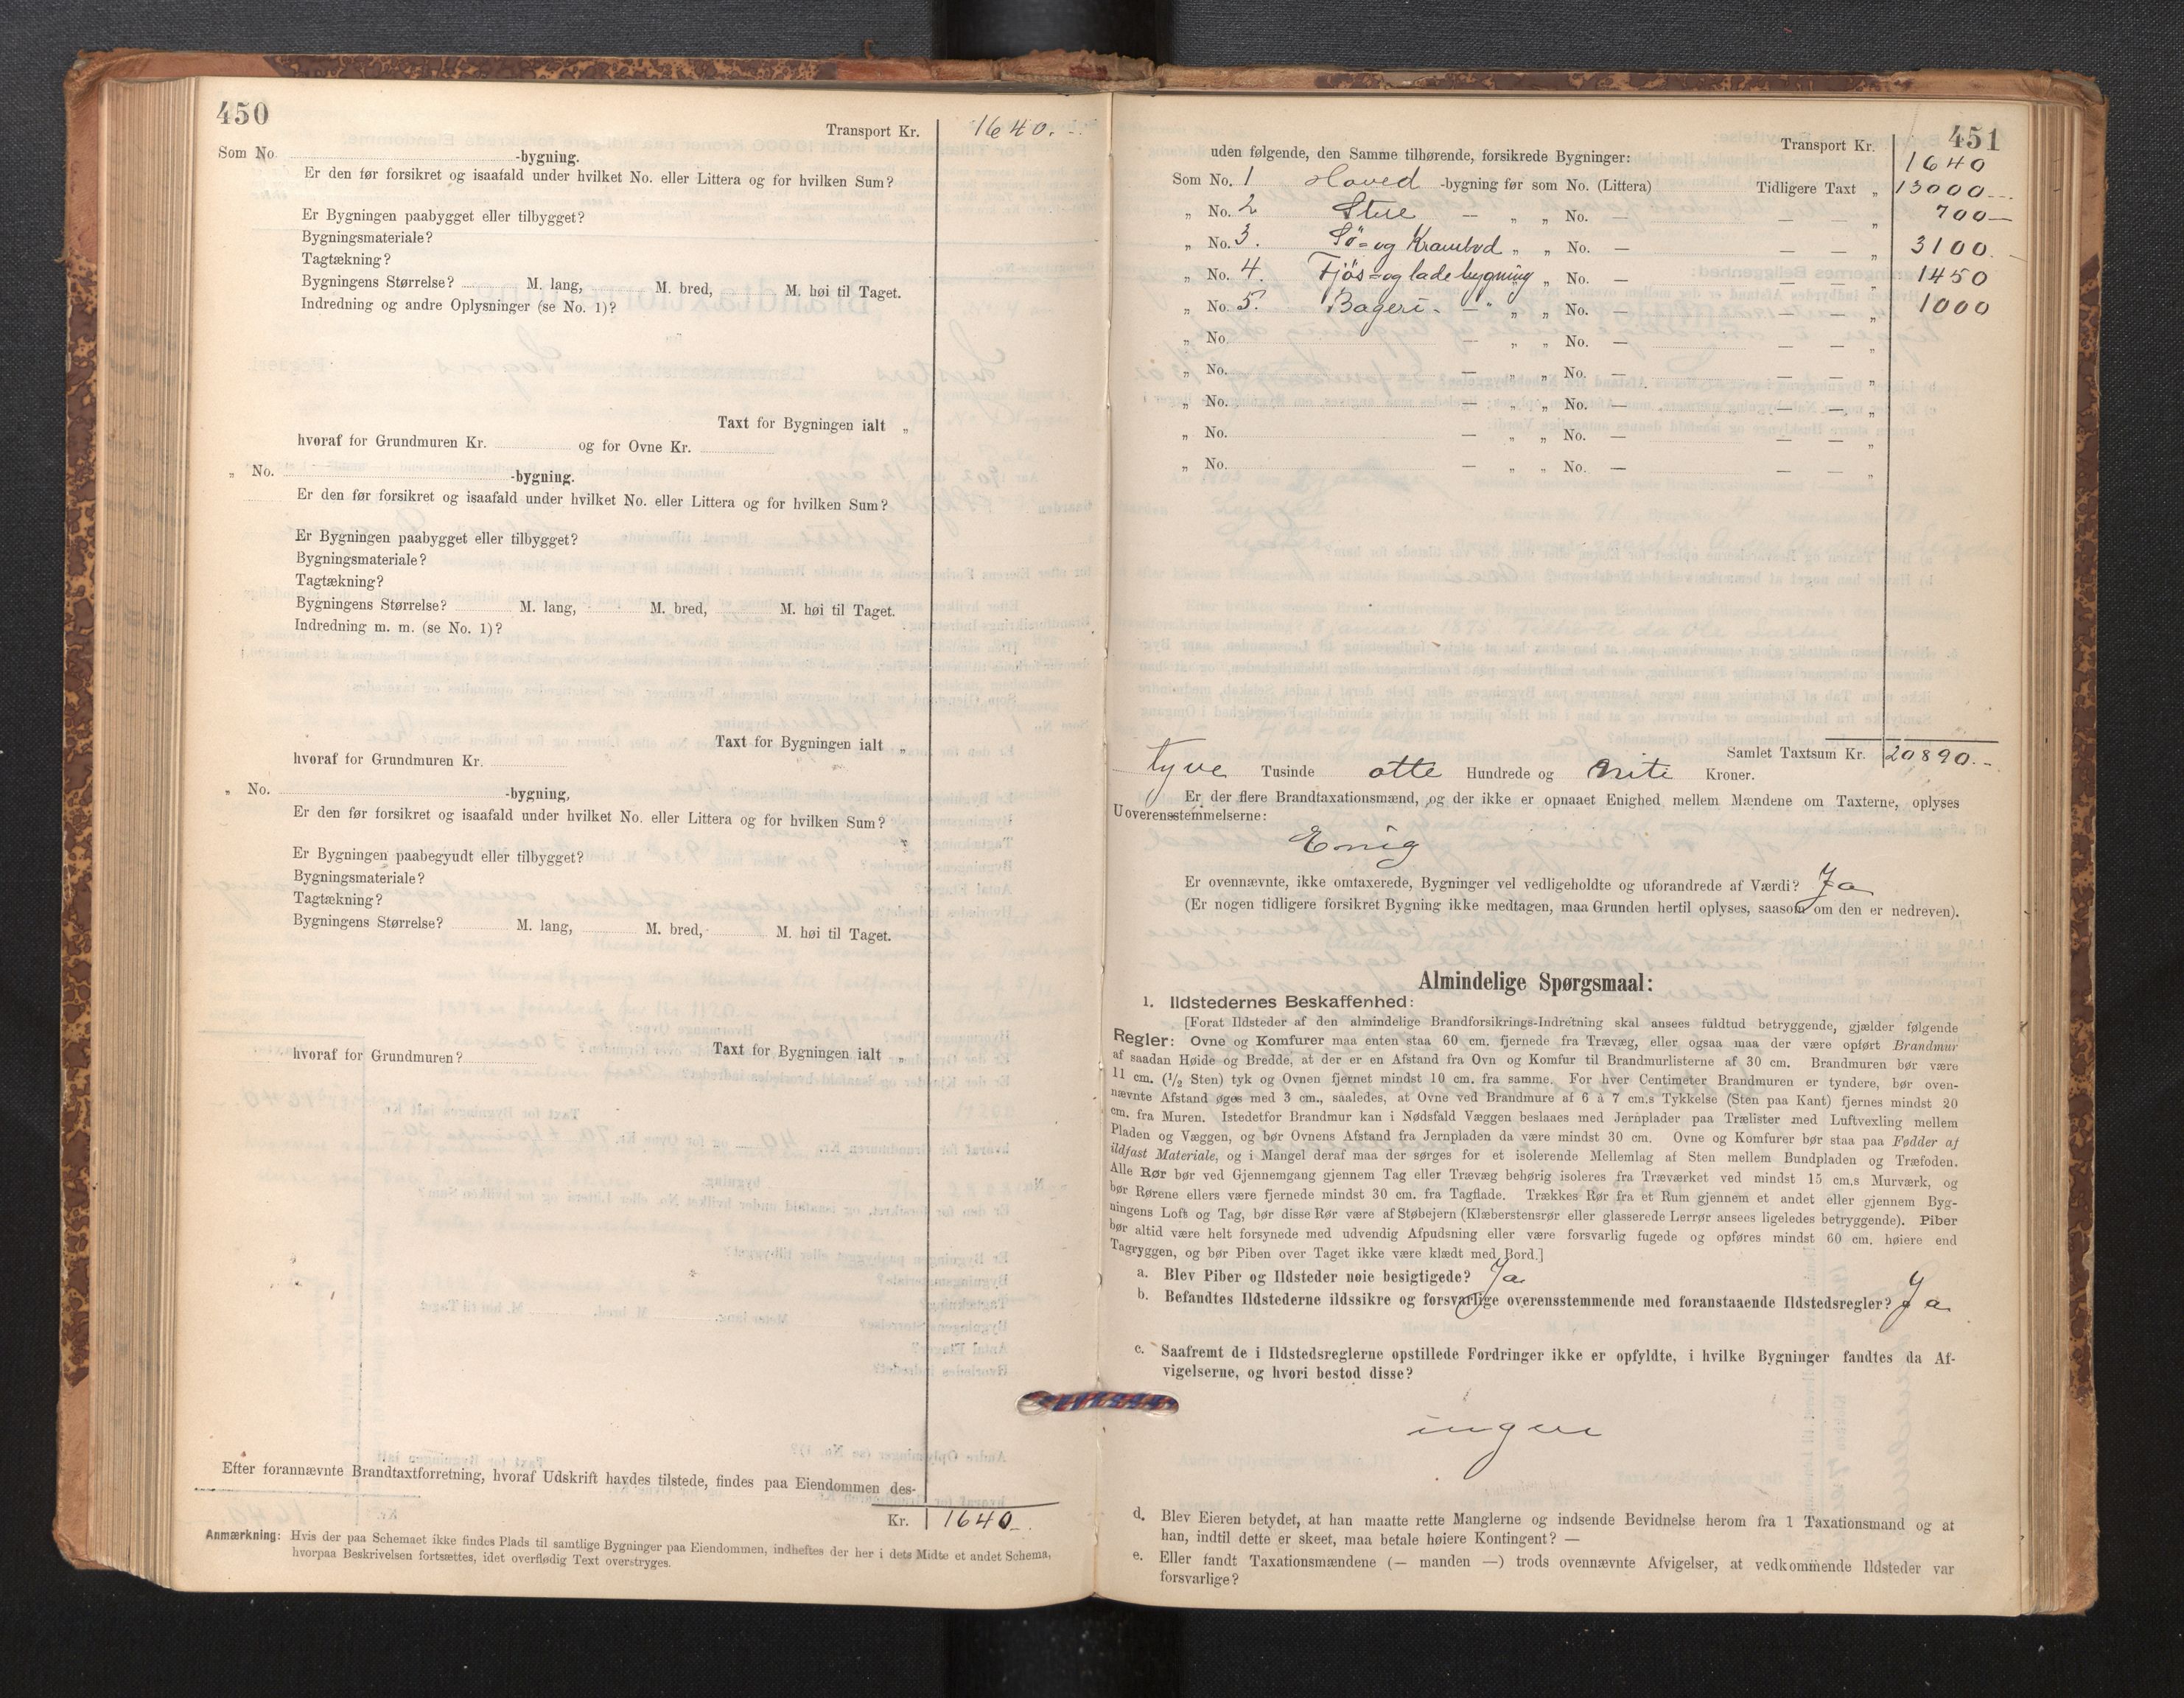 450
Transport Kr. 1640.-
Som No. -bygning.
Er den før forsikret og isaafald under hvilket No. eller Littera og for hvilken Sum?
Er Bygningen paabygget eller tilbygget?
Bygningsmateriale?
Tagtækning?
Bygningens Størrelse? M. lang, M. bred, M. høi til Taget.
Indredning og andre Oplysninger (se No. 1)?
Taxt for Bygningen ialt „
hvoraf for Grundmuren Kr. og for Ovne Kr.
„ No. -bygning.
Er den før forsikret og isaafald under hvilket No. eller Littera og for hvilken Sum?
Er Bygningen paabygget eller tilbygget?
Bygningsmateriale?
Tagtækning?
Bygningens Størrelse? M. lang, M. bred, M. høi til Taget.
Indredning m. m. (se No. 1)?
Taxt for Bygningen ialt „
hvoraf for Grundmuren Kr.
„ No. -bygning,
Er den før forsikret og isaafald under hvilket No. eller Littera og for hvilken Sum?
Er Bygningen paabegyudt eller tilbygget?
Bygningsmateriale?
Tagtækning?
Bygningens Størrelse? M. lang, M. bred, M. høi til Taget.
hvoraf for Grundmuren? Taxt for Bygningen ialt „
Efter forannævnte Brandtaxtforretning, hvoraf Udskrift havdes tilstede, findes paa Eiendommen des-
Kr. 1640.-
Anmærkning: Hvis der paa Schemaet ikke findes Plads til samtlige Bygninger paa Eiendommen, indheftes der her i dets Midte et andet Schema,
hvorpaa Beskrivelsen fortsættes, idet overflødig Text overstryges.
451
Transport Kr. 1640
uden følgende, den Samme tilhørende, forsikrede Bygninger:
Som No. 1 Hoved -bygning før som No. (Littera) Tidligere Taxt „ 13000-
„ No. 2 Stue — „ „ No. — — — „ 700-
„ No. 3. Sö- og Krambod „ „ No. — — — „ 3100.
„ No. 4. Fjös- og ladebygning „ No. — — — „ 1450
„ No. 5. Bageri- — „ „ No. — — — „ 1000
„ No. — „ „ No. — — — „
„ No. — „ „ No. — — — „
„ No. — „ „ No. — — — „
„ No. — „ „ No. — — — „
„ No. — „ „ No. — — — „
Samlet Taxtsum Kr. 20890.-
tyve Tusinde otte Hundrede og niti Kroner.
Er der flere Brandtaxationsmænd, og der ikke er opnaaet Enighed mellem Mændene om Taxterne, oplyses
Uoverensstemmelserne:
Enig
Er ovennævnte, ikke omtaxerede, Bygninger vel vedligeholdte og uforandrede af Værdi? Ja
(Er nogen tidligere forsikret Bygning ikke medtagen, maa Grunden hertil oplyses, saasom om den er nedreven).
Almindelige Spørgsmaal:
1. Ildstedernes Beskaffenhed:
[Forat Ildsteder af den almindelige Brandforsikrings-Indretning skal ansees fuldtud betryggende, gjælder følgende
Regler: Ovne og Komfurer maa enten staa 60 cm. fjernede fra Trævæg, eller ogsaa maa der være opført Brandmur
af saadan Høide og Bredde, at der er en Afstand fra Ovn og Komfur til Brandmurlisterne af 30 cm. Brandmuren bør være
11 cm. (½ Sten) tyk og Ovnen fjernet mindst 10 cm. fra samme. For hver Centimeter Brandmuren er tyndere, bør oven-
nævnte Afstand øges med 3 cm., saaledes, at Ovne ved Brandmure af 6 à 7 cm.s Tykkelse (Sten paa Kant) fjernes mindst 20
cm. fra Muren. Istedetfor Brandmur kan i Nødsfald Væggen beslaaes med Jernplader paa Trælister med Luftvexling mellem
Pladen og Væggen, og bør Ovnens Afstand fra Jernpladen da være mindst 30 cm. Ovne og Komfurer bør staa paa Fødder af
ildfast Materiale, og i Mangel deraf maa der sørges for et isolerende Mellemlag af Sten mellem Bundpladen og Træfoden.
Alle Rør bør ved Gjennemgang gjennem Tag eller Trævæg behørig isoleres fra Træværket ved mindst 15 cm.s Murværk, og
bør Rørene ellers være fjernede mindst 30 cm. fra Tagflade. Trækkes Rør fra et Rum gjennem et andet eller gjennem Byg-
ningens Loft og Tag, bør disse Rør være af Støbejern (Klæberstensrør eller glasserede Lerrør ansees ligeledes betryggende). Piber
bør altid være helt forsynede med udvendig Afpudsning eller være forsvarlig fugede og opføres mindst 60 cm. høiere end
Tagryggen, og bør Piben over Taget ikke være klædt med Bord.]
a. Blev Piber og Ildsteder nøie besigtigede? Ja
b. Befandtes Ildstederne ildssikre og forsvarlige overensstemmende med foranstaaende Ildstedsregler? Ja
c. Saafremt de i Ildstedsreglerne opstillede Fordringer ikke er opfyldte, i hvilke Bygninger fandtes da Af-
vigelserne, og hvori bestod disse?
ingen
d. Blev Eieren betydet, at han maatte rette Manglerne og indsende Bevidnelse herom fra 1 Taxationsmand og at
han, indtil dette er skeet, maa betale høiere Kontingent? —
e. Eller fandt Taxationsmændene (— manden —) trods ovennævnte Afvigelser, at vedkommende Ildsteder var
forsvarlige?